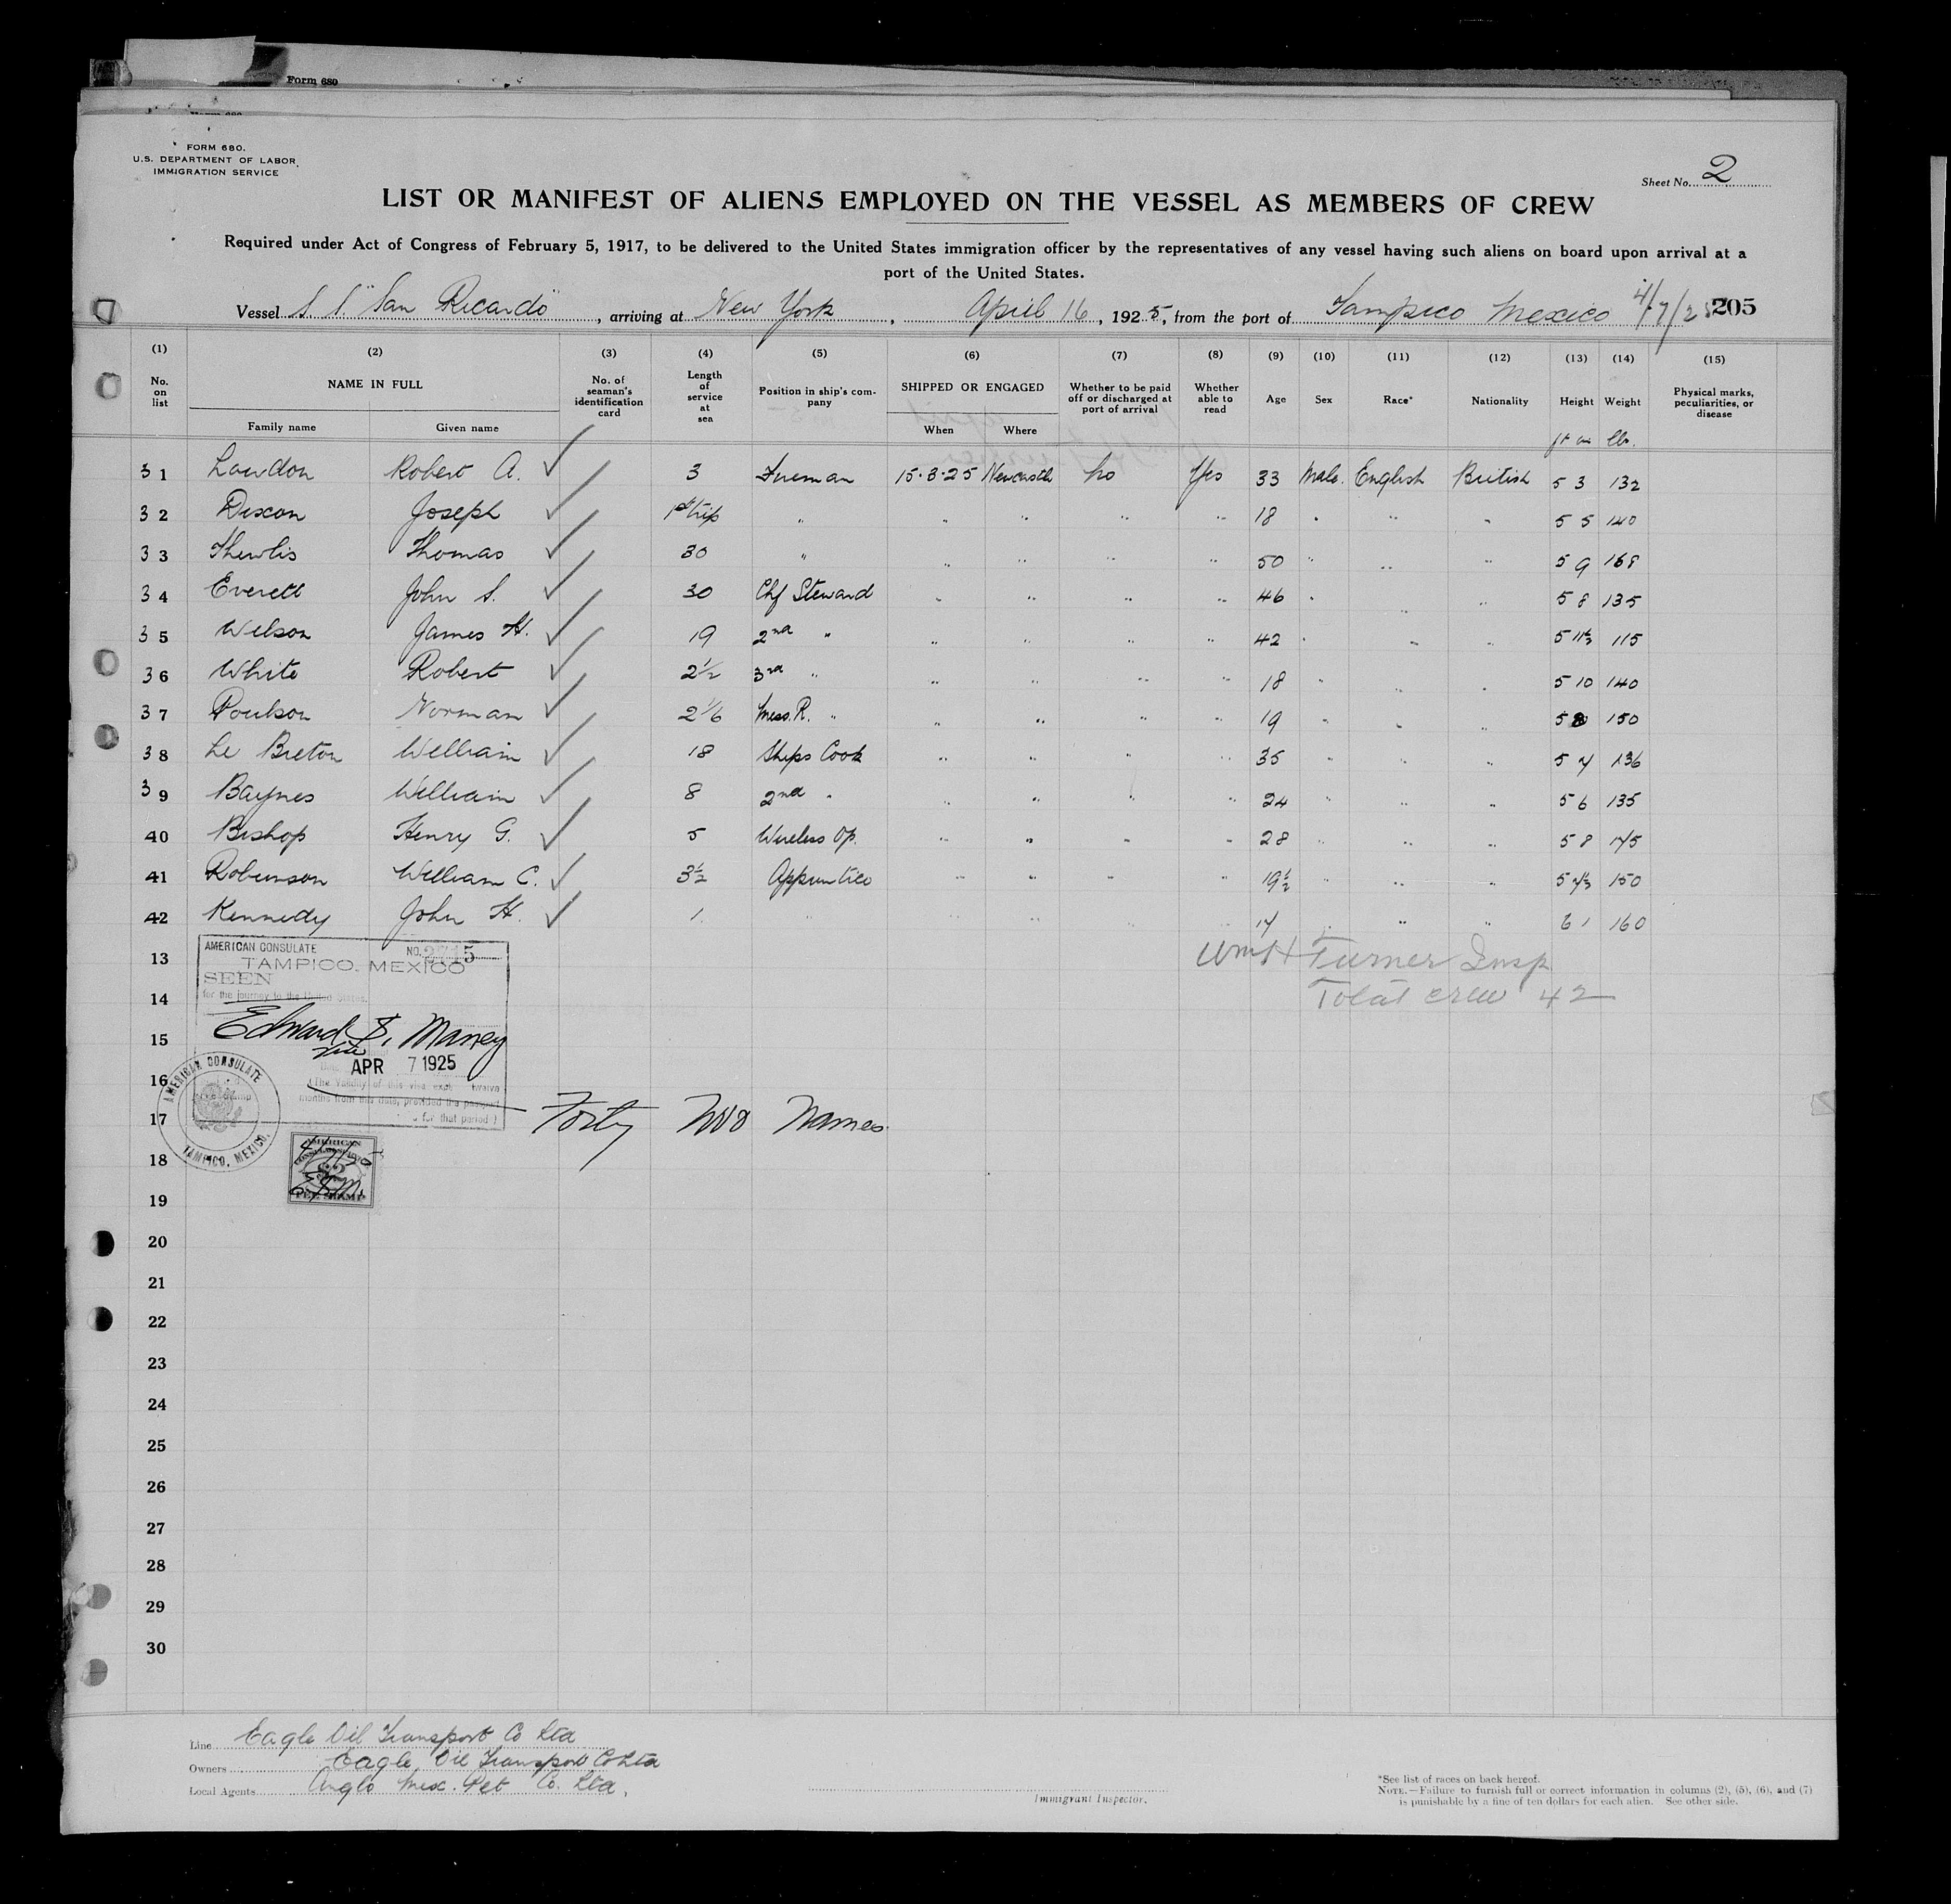 Form 680
FORM 680.
U.S. DEPARTMENT OF LABOR
IMMIGRATION SERVICE
Sheet No. 2
LIST OR MANIFEST OF ALIENS EMPLOYED ON THE VESSEL AS MEMBERS OF CREW
Required under Act of Congress of February 5, 1917, to be delivered to the United States immigration officer by the representatives of any vessel having such aliens on board upon arrival at a
port of the United States.
Vessel S. S. "San Ricardo", arriving at New York, April 16, 1925, from the port of Tampico Mexico 4/7/25 205
(1) (2) (3) (4) (5) (6) (7) (8) (9) (10) (11) (12) (13) (14) (15)
No. on list NAME IN FULL No. of seaman's identification card Length of service at sea Position in ship's company SHIPPED OR ENGAGED Whether to be paid off or discharged at port of arrival Whether able to read Age Sex Race* Nationality Height Weight Physical marks, peculiarities, or disease
Family name Given name When Where ft in lbs.
31 Lowdon Robert A. ✓ 3 Fireman 15.3.25 Newcastle No Yes 33 Male. English British 5 3 132
32 Dixon Joseph ✓ 1st trip " " " " " 18 " " " 5 5 140
33 Thewlis Thomas ✓ 30 " " " " " 50 " " " 5 9 168
34 Everett John S. ✓ 30 Chf Steward " " " " 46 " " " 5 8 135
35 Wilson James H. ✓ 19 2nd " " " " " 42 " " " 5 11½ 115
36 White Robert ✓ 2½ 3rd " " " " " 18 " " " 5 10 140
37 Poulson Norman ✓ 2 1/6 Mess. R. " " " " " 19 " " " 5 8 150
38 Le Breton William ✓ 18 Ships Cook " " " " 35 " " " 5 7 136
39 Baynes William ✓ 8 2nd " " " " " 24 " " " 5 6 135
40 Bishop Henry G. ✓ 5 Wireless Op. " " " " 28 " " " 5 8 145
41 Robinson William C. ✓ 3½ Apprentice " " " " 19½ " " " 5 7½ 150
42 Kennedy John H. ✓ 1. " " " " 17 " " " 6 1 160
13
Wm H Turner Insp
14
Total crew 42
AMERICAN CONSULATE NO. 2715
TAMPICO, MEXICO
SEEN
for the journey to the United States.
Edward S. Maney
15
Vice
APR 7 1925
(The validity of this visa twelve
16
months from this date, provided the passport
for that period)
AMERICAN CONSULATE
TAMPICO, MEXICO.
17 Forty two names
18
AMERICAN
FEE STAMP
19
20
21
22
23
24
25
26
27
28
29
30
Line Eagle Oil Transport Co Ltd
Owners Eagle Oil Transport Co Ltd
Local Agents Anglo Mex. Pet Co. Ltd,
Immigrant Inspector.
*See list of races on back hereof.
NOTE.—Failure to furnish full or correct information in columns (2), (5), (6), and (7)
is punishable by a fine of ten dollars for each alien. See other side.